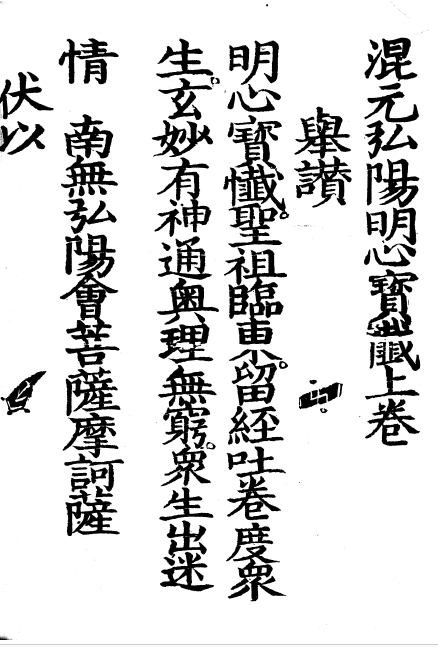 混元弘陽明心寶懺上卷
舉讃
明心寶懺聖祖臨東。留經吐卷度衆
生。玄妙有神通奥理無窮。衆生出迷
情　南無弘陽會菩薩摩訶薩
伏以